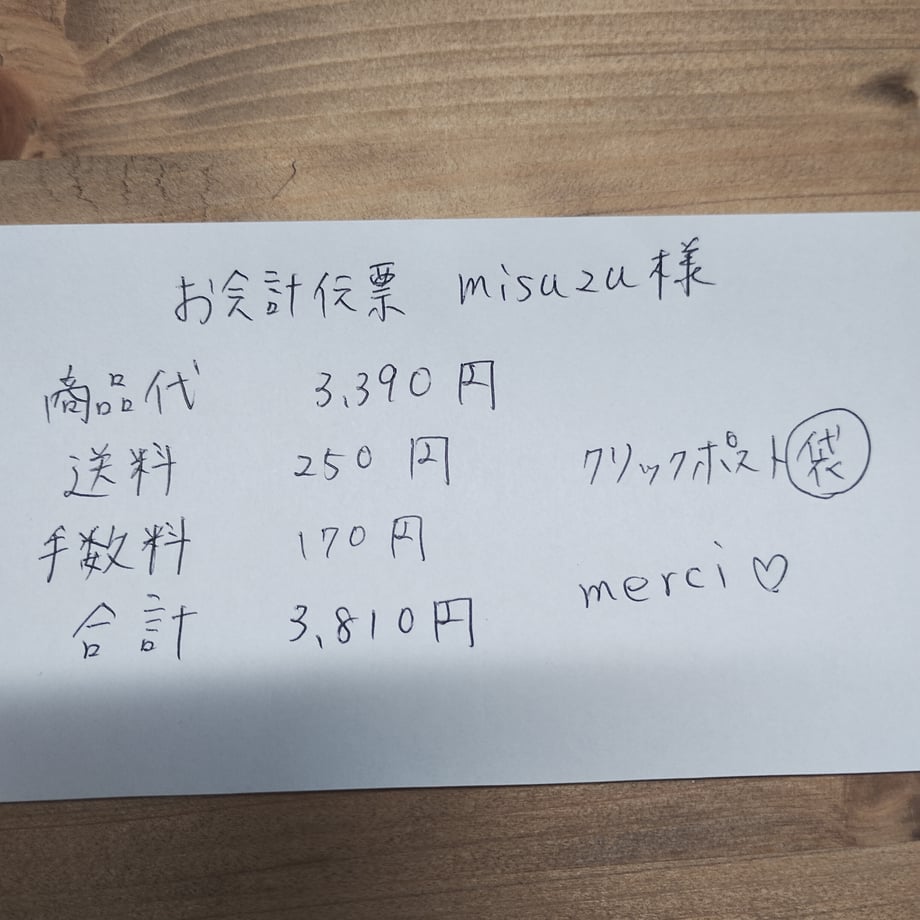 お会計伝票 misuzu様
商品代 3,390円
送料 250円 クリックポスト袋
手数料 170円
merci♡
合計 3,810円